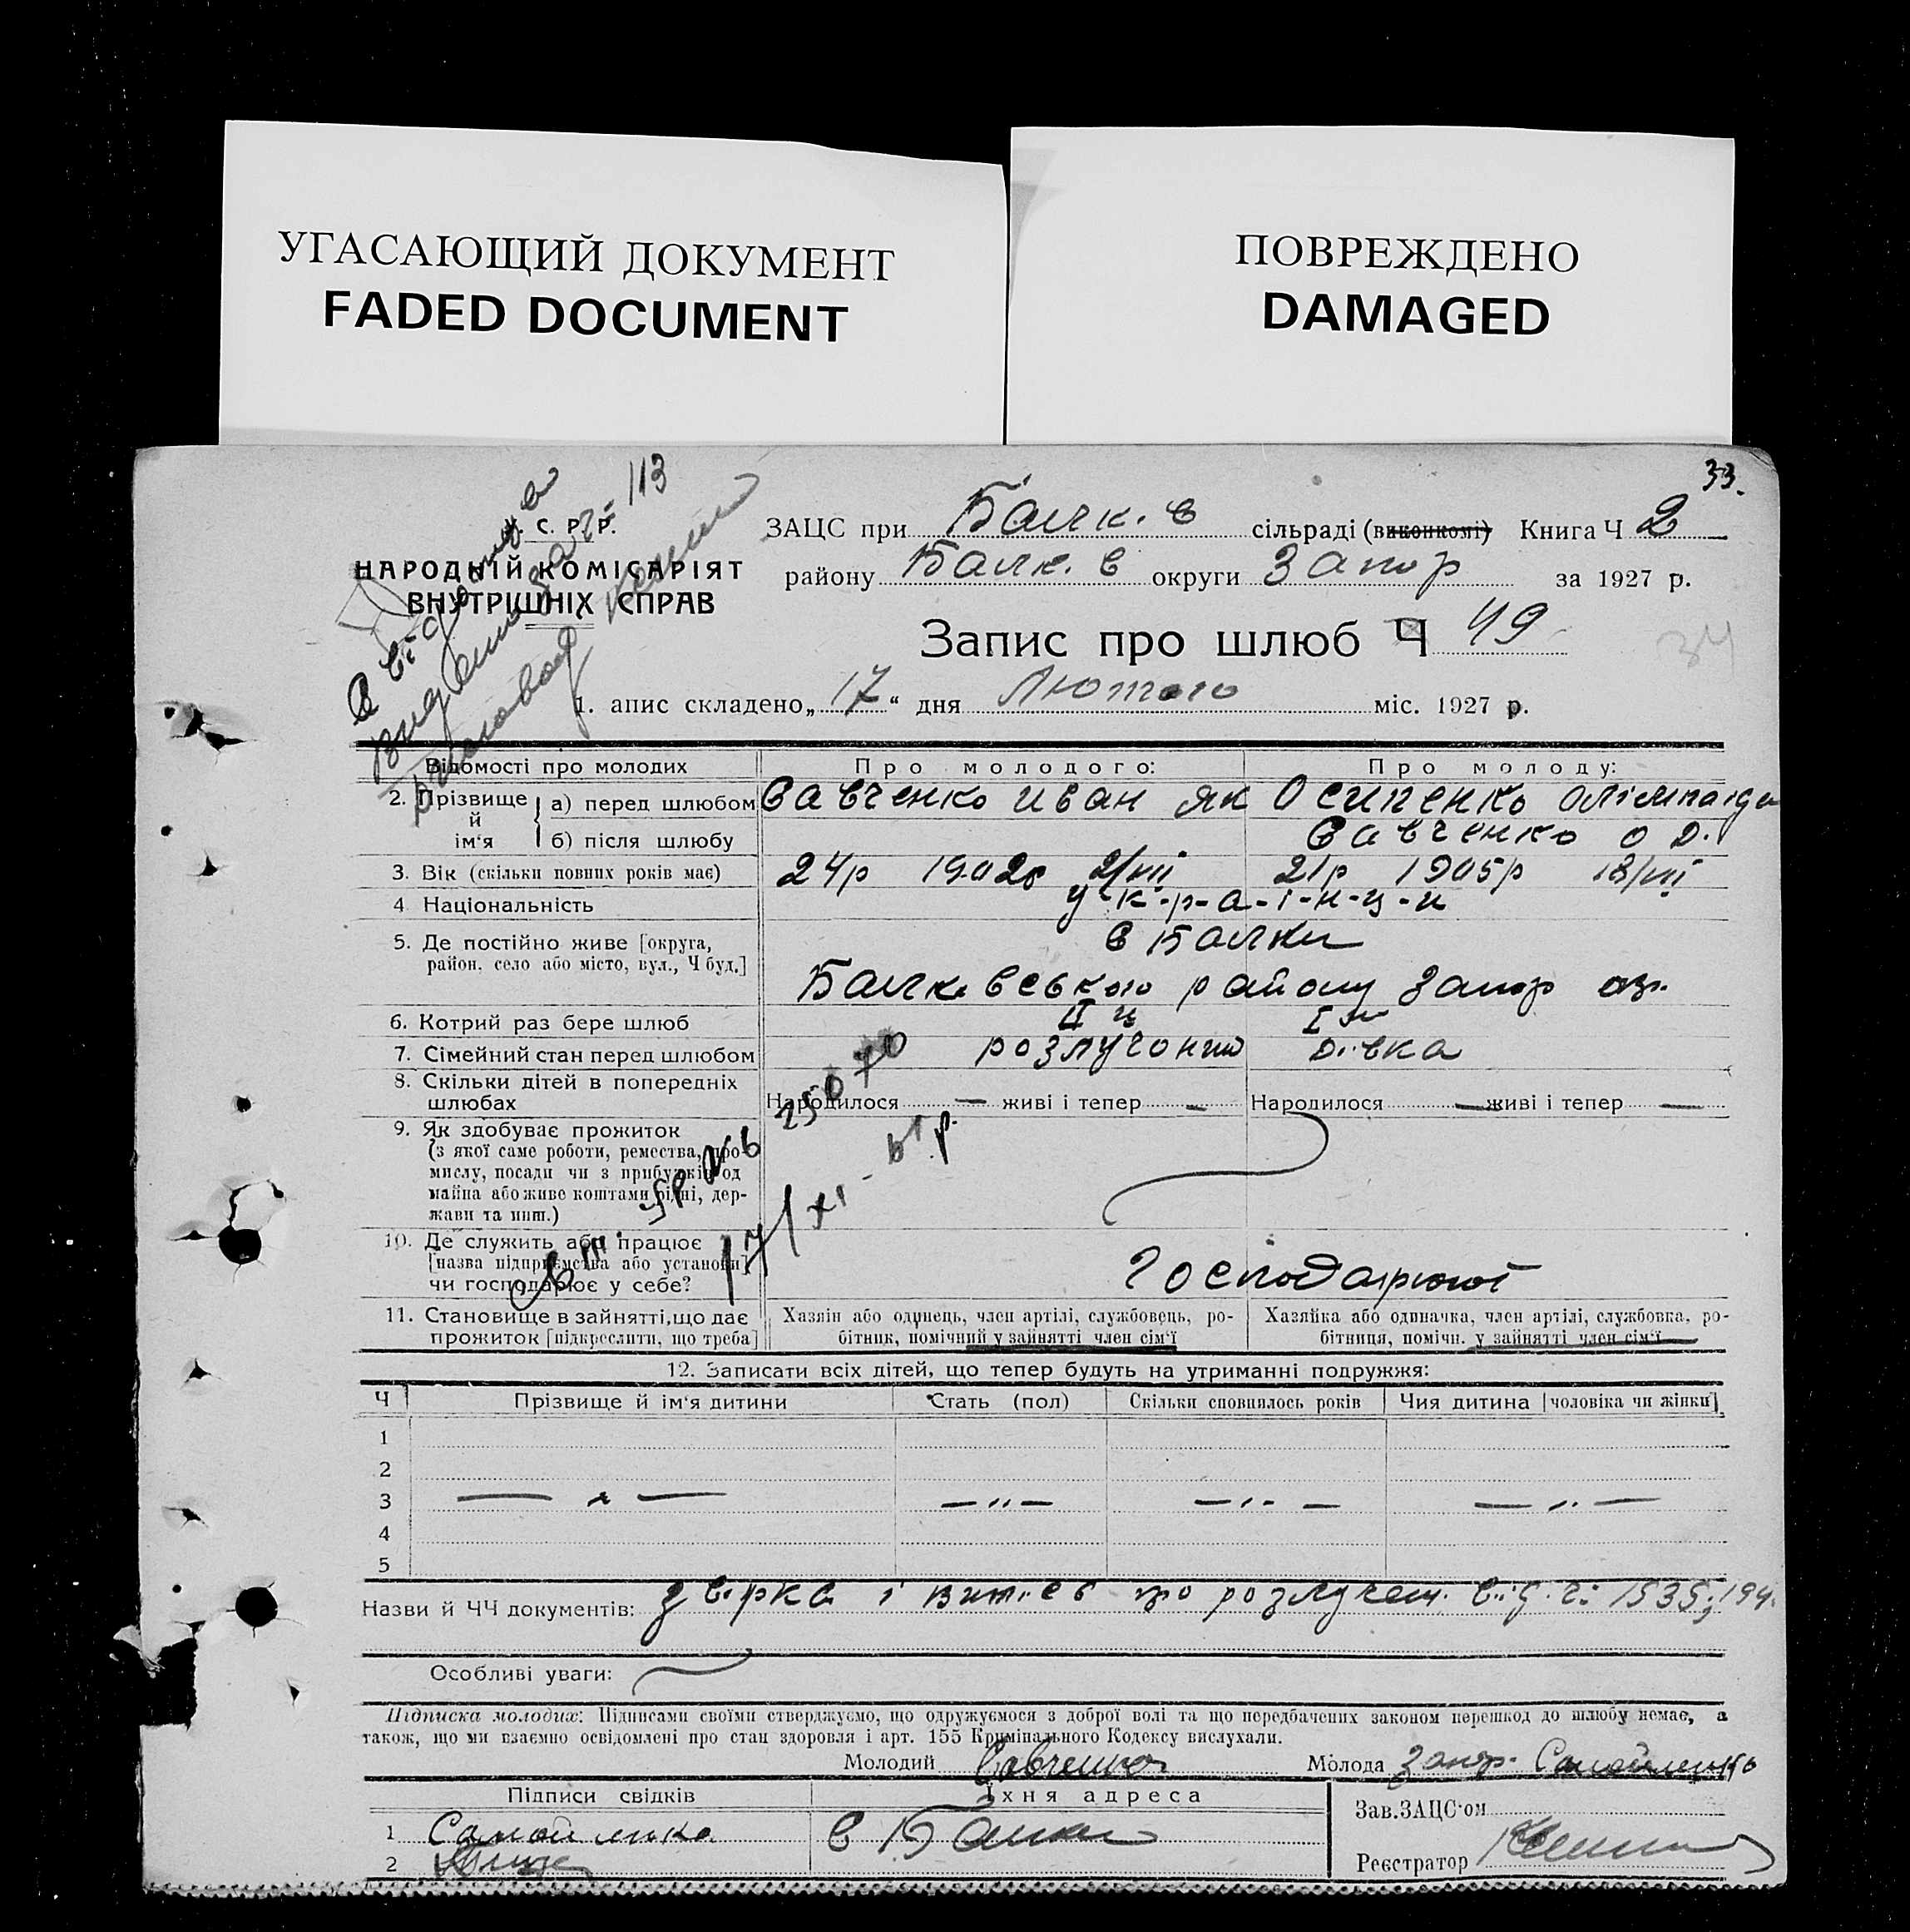 УГАСАЮЩИЙ ДОКУМЕНТ
FADED DOCUMENT
ПОВРЕЖДЕНО
DAMAGED
33.
113
У. С. Р. Р.
НАРОДНІЙ КОМІСАРІЯТ
ВНУТРІШНІХ СПРАВ
ЗАЦС при Балк. в сільраді (виконкомі) Книга Ч 2
району Балк. в округи Запор за 1927 р.
Запис про шлюб Ч 49
34
1. апис складено „17“ дня Лютого міс. 1927 р.
Відомості про молодих Про молодого: Про молоду:
2. Прізвище й ім'я а) перед шлюбом Савченко иван як Осипенко
б) після шлюбу Савченко о Д.
3. Вік (скільки повних років має) 24р 1902р 2/VII 21р 1905р 18/VII
4. Національність у-к-р-а-і-н-ц-и
5. Де постійно живе [округа, с Балки
район, село або місто, вул., Ч буд.]
Балковського району Запор
6. Котрий раз бере шлюб II й I
7. Сімейний стан перед шлюбом розлучоний Дівка
8. Скільки дітей в попередніх
шлюбах Народилося — живі і тепер — Народилося — живі і тепер —
9. Як здобуває прожиток
(з якої саме роботи, ремества, про-
мислу, посади чи з прибутків од
майна або живе коштами рідні, дер-
жави та инш.)
25070
17/XI
10. Де служить або працює
[назва підприємства або установи]
чи господарює у себе? Господарюют
11. Становище в зайнятті, що дає Хазяін або одинець, член артілі, службовець, ро- Хазяйка або одиначка, член артілі, службовка, ро-
прожиток [підкреслити, що треба] бітник, помічний у зайнятті член сім'ї бітниця, помічн. у зайнятті член сім'ї
12. Записати всіх дітей, що тепер будуть на утриманні подружжя:
Ч Прізвище й ім'я дитини Стать (пол) Скільки сповнилось років Чия дитина [чоловіка чи жінки]
1
2
3 — " — — " — — " — — " —
4
5
Назви й ЧЧ документів: звірка і витяг про розлучен. 1535; 194
Особливі уваги:
Підписка молодих: Підписами своїми стверджуємо, що одружуємося з доброї волі та що передбачених законом перешкод до шлюбу немає, а
також, що ми взаємно освідомлені про стан здоровля і арт. 155 Кримінального Кодексу вислухали.
Молодий Савченко Молода Самойленко
Підписи свідків Їхня адреса Зав. ЗАЦС'ом
1 Самойленко с Балки
2
Реєстратор